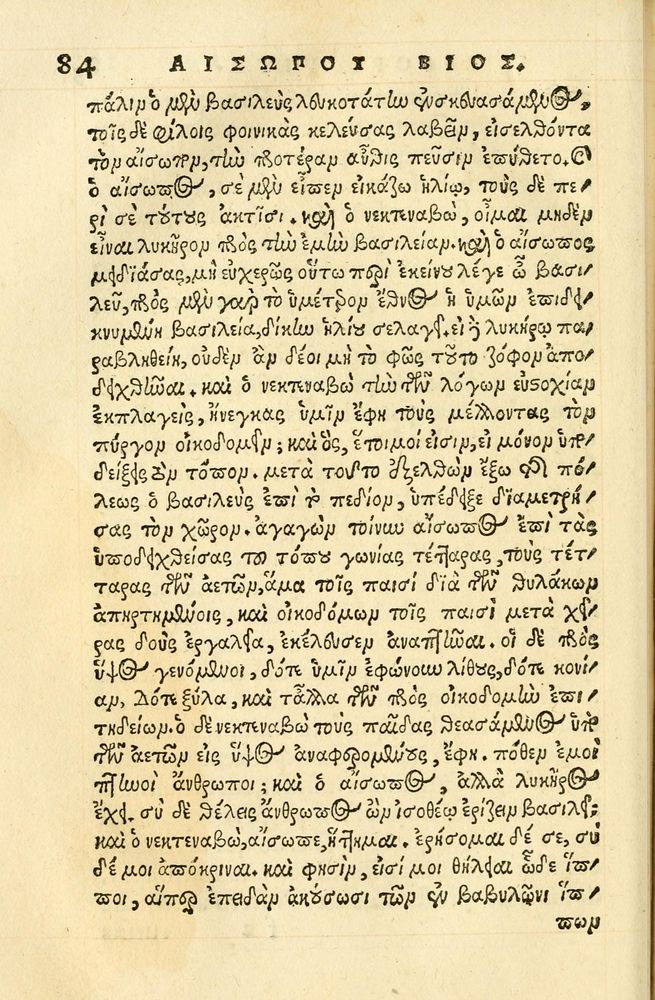 84 ΑΙΣΩΠΟΥ ΒΙΟΣ.
πάλιν ὁ μὲν βασιλεὺς λευκοτάτην ἐνσκευασάμενος,
τοῖς δὲ φίλοις φοινικὰς κελεύσας λαβεῖν, εἰσελθόντα
τὸν αἴσωπον, τὴν προτέραν αὖθις πεῦσιν ἐπύθετο. καὶ
ὁ αἴσωπος, σὲ μὲν εἶπεν εἰκάζω ἡλίῳ, τοὺς δὲ πε-
ρὶ σὲ τούτους ἀκτῖσι. καὶ ὁ νεκτεναβὼ, οἶμαι μηδὲν
εἶναι λυκῆρον πρὸς τὴν ἐμὴν βασιλείαν. καὶ ὁ αἴσωπος
μειδιάσας, μὴ εὐχερῶς οὕτω περὶ ἐκείνου λέγε ὦ βασι-
λεῦ, πρὸς μὲν γὰρ τὸ ὑμέτερον ἔθνος ἡ ὑμῶν ἐπιδει-
κνυμένη βασιλεία, δίκην ἡλίου σελαγεῖ. εἰ δὲ λυκήρῳ πα-
ραβληθείη, οὐδὲν ἂν δέοι μὴ τὸ φῶς τοῦτο ζόφον ἀπο-
δειχθῆναι. καὶ ὁ νεκτεναβὼ τὴν τῶν λόγων εὐστοχίαν
ἐκπλαγεὶς, ἤνεγκας ὑμῖν ἔφη τοὺς μέλλοντας τὸν
πύργον οἰκοδομεῖν; καὶ ὃς, ἕτοιμοί εἰσιν, εἰ μόνον ὑπο-
δείξεις τὸν τόπον. μετὰ τοῦτο ἐξελθὼν ἔξω τῆς πό-
λεως ὁ βασιλεὺς ἐπὶ τὸ πεδίον, ὑπέδειξε διαμετρή-
σας τὸν χῶρον. ἀγαγὼν τοίνυν αἴσωπος ἐπὶ τὰς
ὑποδειχθείσας τοῦ τόπου γωνίας τέτταρας, τοὺς τέτ-
ταρας τῶν ἀετῶν, ἅμα τοῖς παισὶ διὰ τῶν θυλάκων
ἀπηρτημένοις, καὶ οἰκοδόμων τοῖς παισὶ μετὰ χεῖ-
ρας δοὺς ἐργαλεῖα, ἐκέλευσεν ἀναπτῆναι. οἱ δὲ πρὸς
ὕψος γενόμενοι, δότε ὑμῖν ἐφώνουν λίθους, δότε κονί-
αν, δότε ξύλα, καὶ τἆλλα τῶν πρὸς οἰκοδομὴν ἐπι-
τηδείων. ὁ δὲ νεκτεναβὼ τοὺς παῖδας θεασάμενος ὑπὸ
τῶν ἀετῶν εἰς ὕψος ἀναφερομένους, ἔφη. πόθεν ἐμοὶ
πτηνοὶ ἄνθρωποι; καὶ ὁ αἴσωπος, ἀλλὰ λυκῆρος
ἔχει. σὺ δὲ θέλεις ἄνθρωπος ὢν ἰσοθέῳ ἐρίζειν βασιλεῖ;
καὶ ὁ νεκτεναβὼ, αἴσωπε, ἥττημαι. ἐρήσομαι δέ σε, σὺ
δέ μοι ἀπόκριναι. καὶ φησὶν, εἰσί μοι θήλειαι ὧδε ἵπ-
ποι, αἵπερ ἐπειδὰν ἀκούσωσι τῶν ἐν βαβυλῶνι ἵπ-
πων